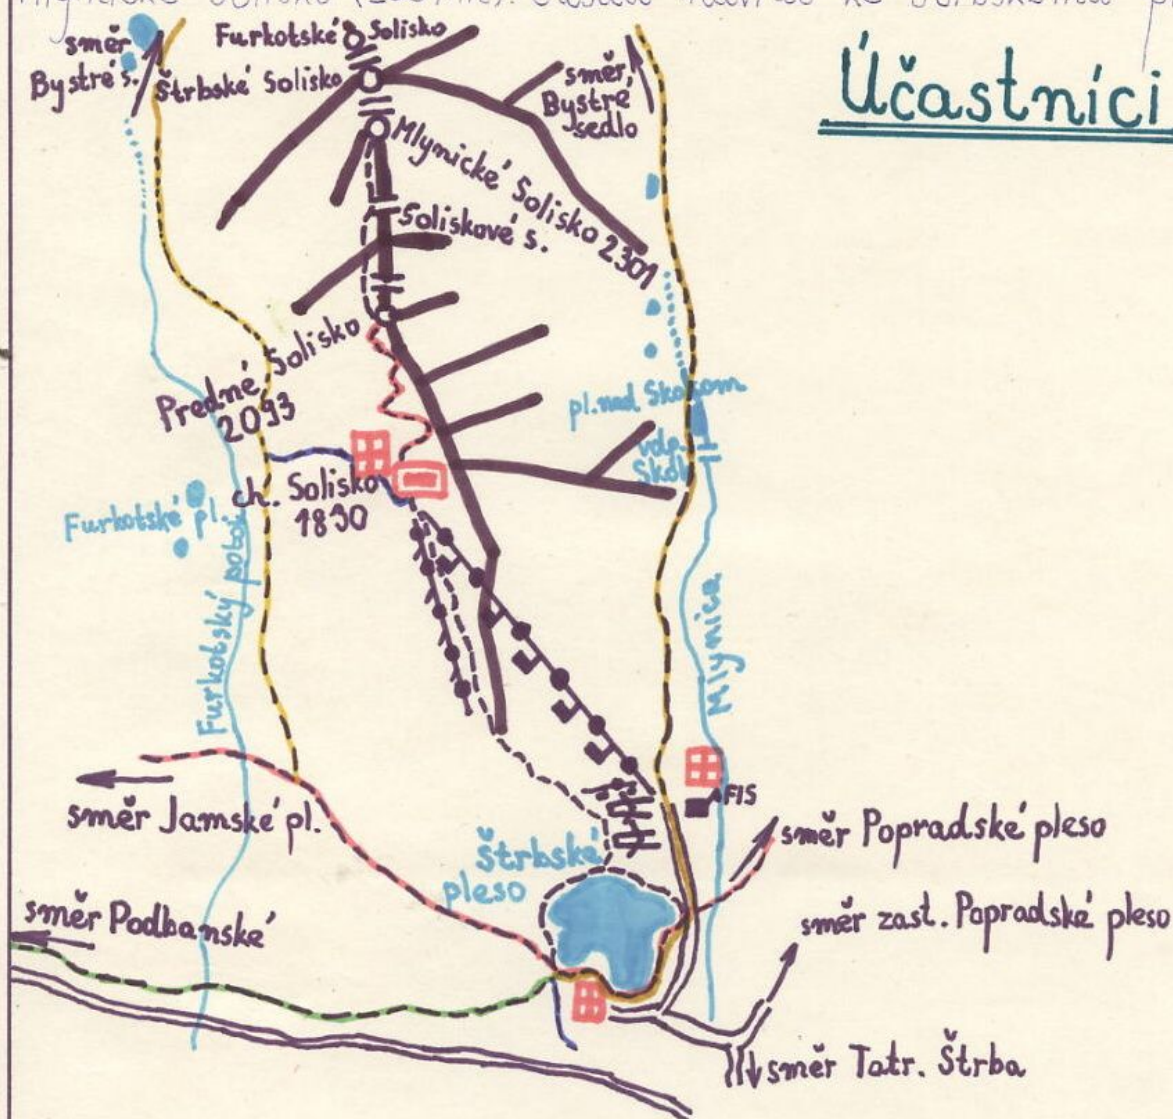 směr
Bystré s.
Furkotské Solisko
Štrbské Solisko
směr
Bystré
sedlo
Účastníci
Mlynické Solisko 2301
Soliskové s.
Predné Solisko
2093
pl. nad Skokom
vdp.
Skok
ch. Solisko
1830
Furkotské pl.
Furkotský potok
Mlynica
FIS
směr Jamské pl.
Štrbské
pleso
směr Popradské pleso
směr Podbanské
směr zast. Popradské pleso
směr Tatr. Štrba